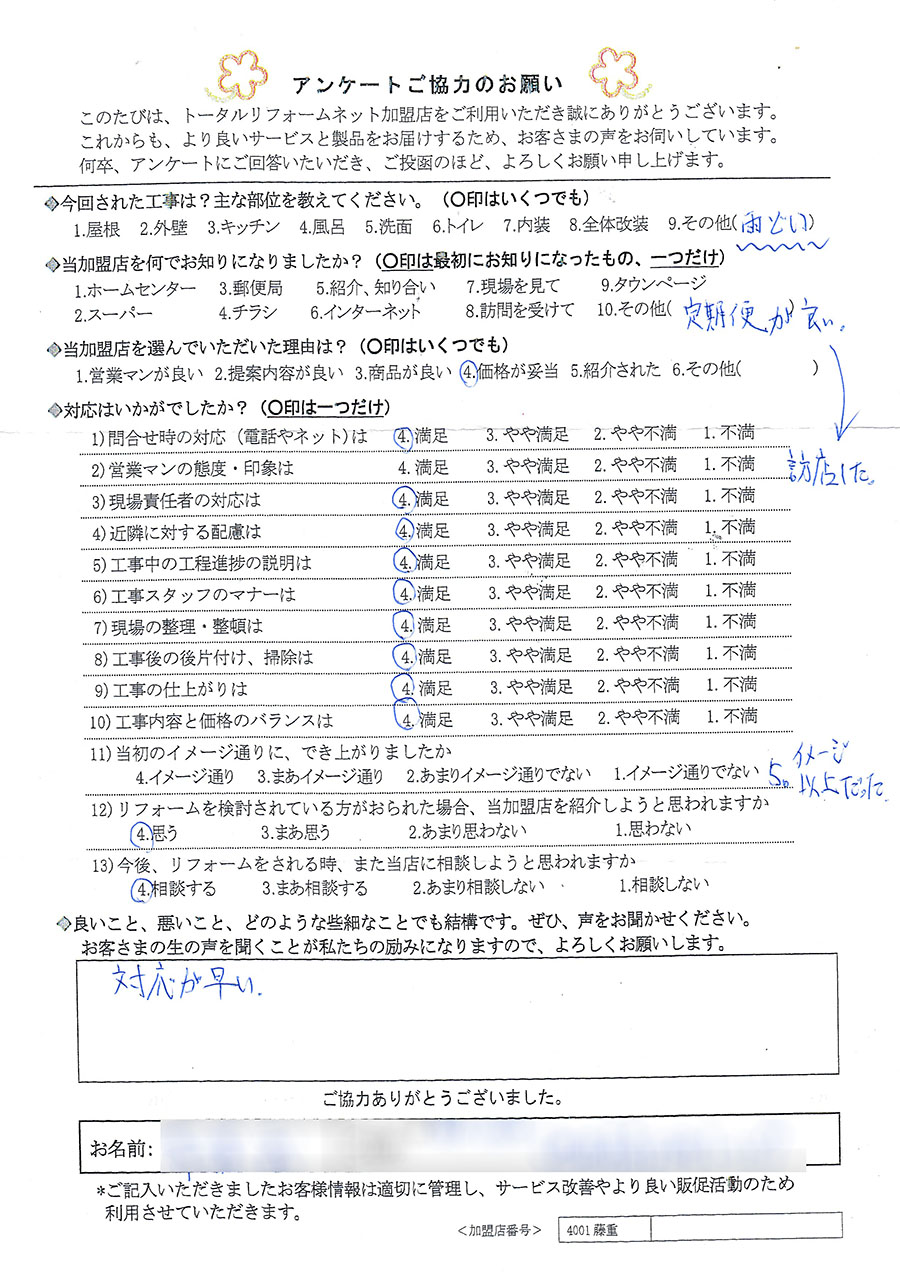 アンケートご協力のお願い
このたびは、トータルリフォームネット加盟店をご利用いただき誠にありがとうございます。
これからも、より良いサービスと製品をお届けするため、お客さまの声をお伺いしています。
何卒、アンケートにご回答いたいだき、ご投函のほど、よろしくお願い申し上げます。
◈今回された工事は？主な部位を教えてください。（〇印はいくつでも）
1.屋根 2.外壁 3.キッチン 4.風呂 5.洗面 6.トイレ 7.内装 8.全体改装 9.その他(雨どい)
◈当加盟店を何でお知りになりましたか？（〇印は最初にお知りになったもの、一つだけ）
1.ホームセンター 3.郵便局 5.紹介、知り合い 7.現場を見て 9.タウンページ
2.スーパー 4.チラシ 6.インターネット 8.訪問を受けて 10.その他( 定期便が良い。)
◈当加盟店を選んでいただいた理由は？（〇印はいくつでも）
1.営業マンが良い 2.提案内容が良い 3.商品が良い 4.価格が妥当 5.紹介された 6.その他( )
◈対応はいかがでしたか？（〇印は一つだけ）
1)問合せ時の対応（電話やネット)は 4.満足 3.やや満足 2.やや不満 1.不満
2)営業マンの態度・印象は 4.満足 3.やや満足 2.やや不満 1.不満 訪店した。
3)現場責任者の対応は 4.満足 3.やや満足 2.やや不満 1.不満
4)近隣に対する配慮は 4.満足 3.やや満足 2.やや不満 1.不満
5)工事中の工程進捗の説明は 4.満足 3.やや満足 2.やや不満 1.不満
6)工事スタッフのマナーは 4.満足 3.やや満足 2.やや不満 1.不満
7)現場の整理・整頓は 4.満足 3.やや満足 2.やや不満 1.不満
8)工事後の後片付け、掃除は 4.満足 3.やや満足 2.やや不満 1.不満
9)工事の仕上がりは 4.満足 3.やや満足 2.やや不満 1.不満
10)工事内容と価格のバランスは 4.満足 3.やや満足 2.やや不満 1.不満
11)当初のイメージ通りに、でき上がりましたか
4.イメージ通り 3.まあイメージ通り 2.あまりイメージ通りでない 1.イメージ通りでない 5.イメージ以上だった
12)リフォームを検討されている方がおられた場合、当加盟店を紹介しようと思われますか
4.思う 3.まあ思う 2.あまり思わない 1.思わない
13)今後、リフォームをされる時、また当店に相談しようと思われますか
4.相談する 3.まあ相談する 2.あまり相談しない 1.相談しない
◈良いこと、悪いこと、どのような些細なことでも結構です。ぜひ、声をお聞かせください。
お客さまの生の声を聞くことが私たちの励みになりますので、よろしくお願いします。
対応が早い.
ご協力ありがとうございました。
お名前:
*ご記入いただきましたお客様情報は適切に管理し、サービス改善やより良い販促活動のため
利用させていただきます。
＜加盟店番号＞ 4001 藤重